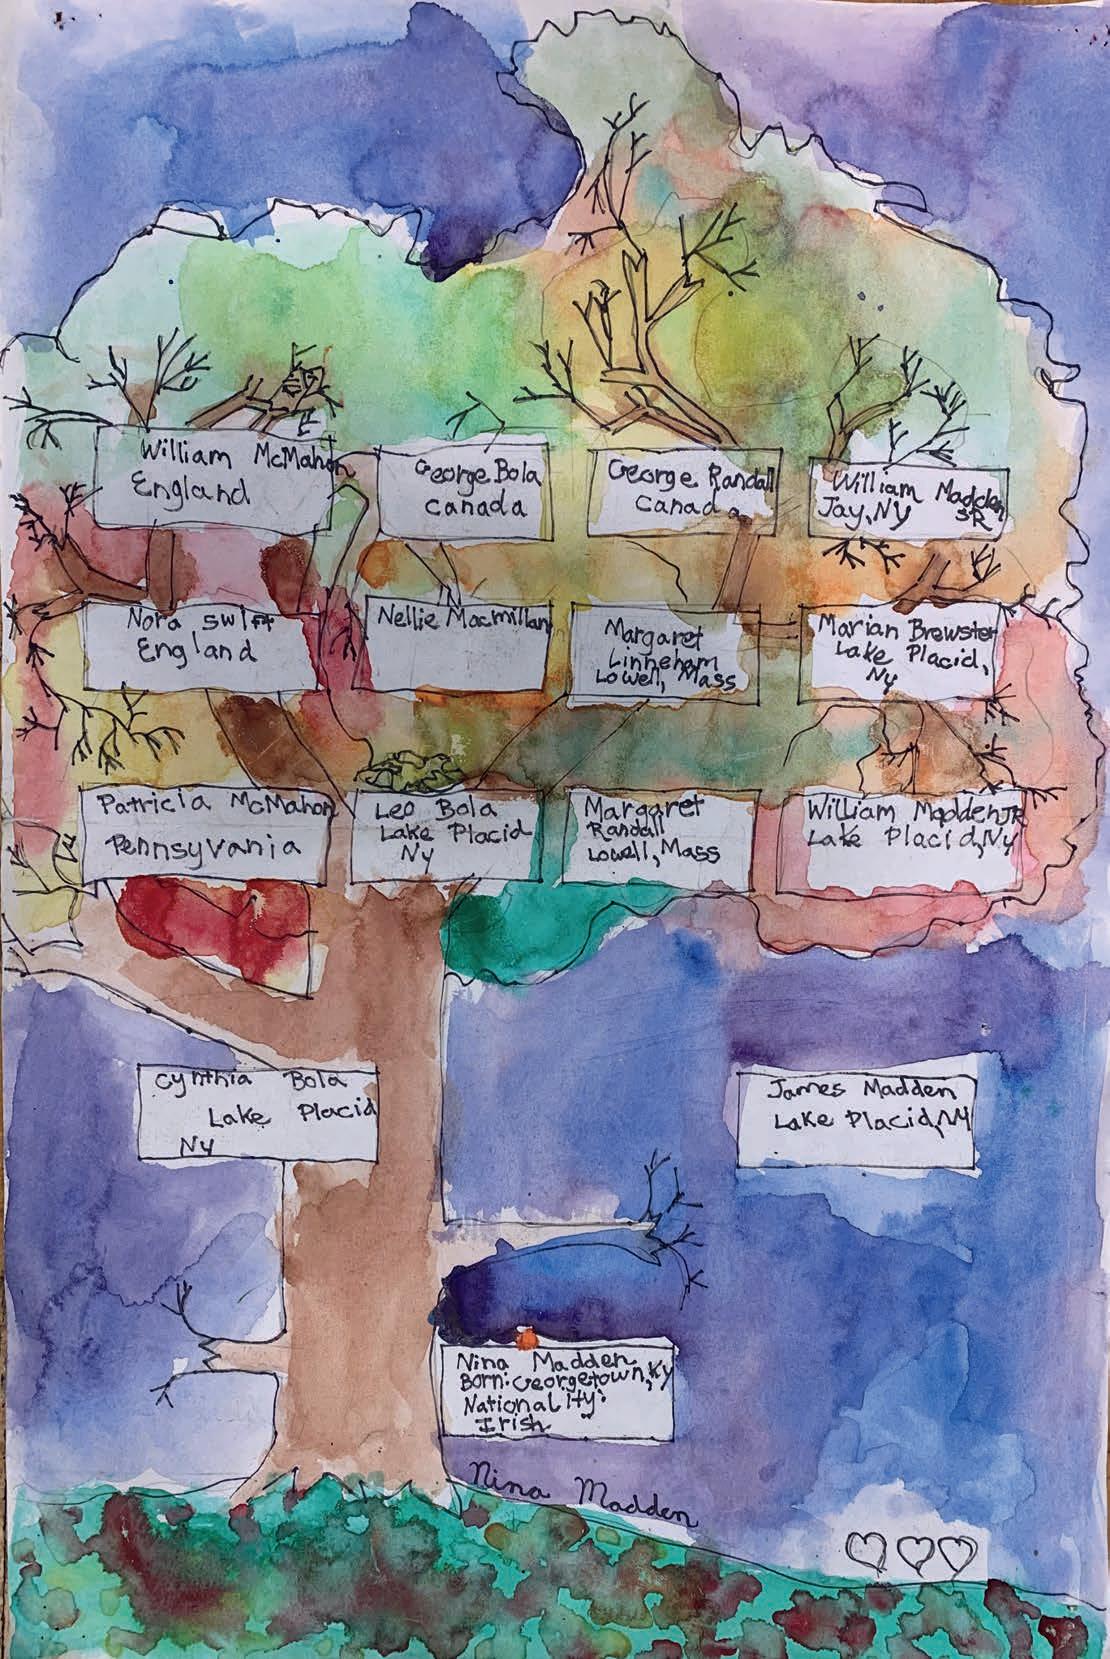 William McMahon
England
George Bola
Canada
George Randall
Canada
William Madden
Jay, NY SR
Nora Swift
England
Nellie Macmillan
Margaret
Linneham
Lowell, Mass
Marian Brewster
Lake Placid,
Ny
Patricia McMahon
Pennsylvania
Leo Bola
Lake Placid
NY
Margaret
Randall
Lowell, Mass
William Madden JR
Lake Placid, Ny
Cynthia Bola
Lake Placid
Ny
James Madden
Lake Placid, NY
Nina Madden
Born: Georgetown, Ky
Nationality:
Irish
Nina Madden